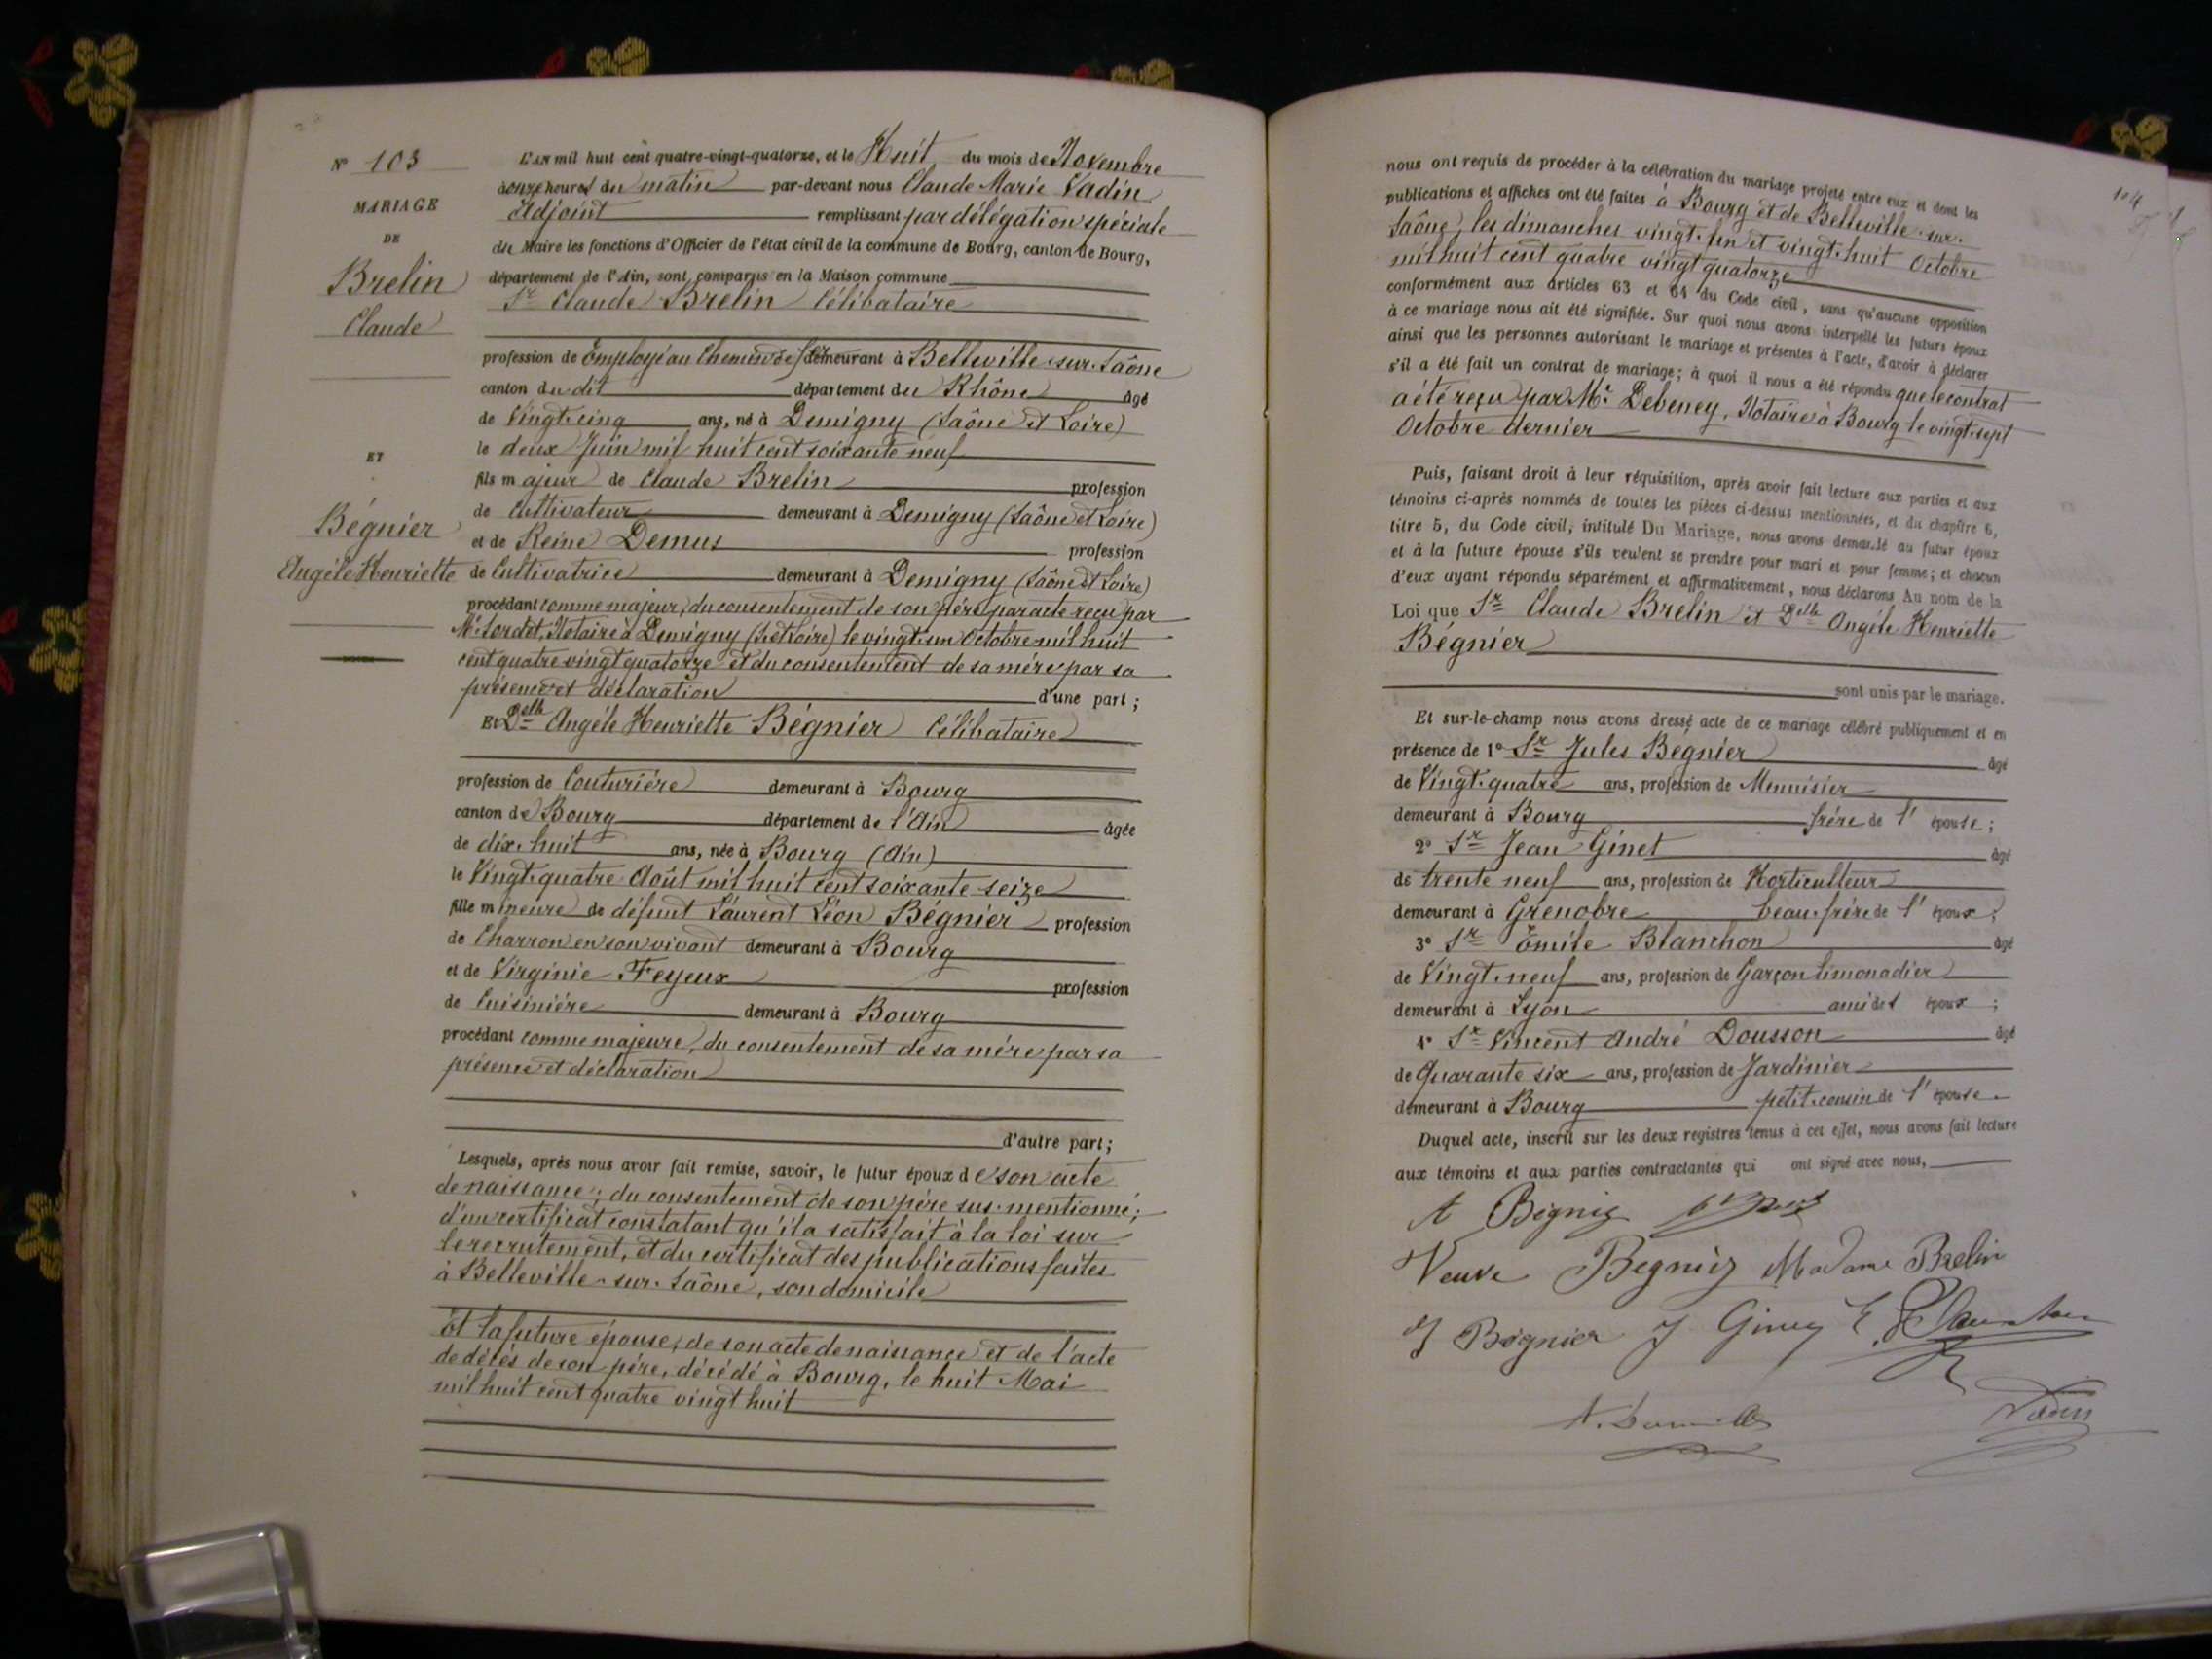 N° 103
MARIAGE
DE
Brelin
Claude
ET
Bégnier
Angèle Henriette
L'AN mil huit cent quatre-vingt-quatorze, et le Huit du mois de Novembre
à onze heures du matin par-devant nous Claude Marie Vadin
Adjoint remplissant par délégation spéciale
du Maire les fonctions d'Officier de l'état civil de la commune de Bourg, canton de Bourg,
département de l'Ain, sont comparus en la Maison commune
Sr Claude Brelin Célibataire
profession de Employé au Chemin de fer demeurant à Belleville-sur-Saône
canton du dit département du Rhône âgé
de Vingt-cinq ans, né à Demigny (Saône et Loire)
le deux Juin mil huit cent soixante neuf
fils majeur de Claude Brelin profession
de Cultivateur demeurant à Demigny (Saône et Loire)
et de Reine Demus profession
de Cultivatrice demeurant à Demigny (Saône et Loire)
procédant comme majeur, du consentement de son père par acte reçu par
Me Sordet, Notaire à Demigny (S. et Loire) le vingt-un Octobre mil huit
cent quatre vingt quatorze et du consentement de sa mère par sa
présence et déclaration d'une part ;
Et Delle Angèle Henriette Bégnier Célibataire
profession de Couturière demeurant à Bourg
canton de Bourg département de l'Ain âgée
de dix-huit ans, née à Bourg (Ain)
le Vingt-quatre Août mil huit cent soixante seize
fille mineure de défunt Laurent Léon Bégnier profession
de Charron en son vivant demeurant à Bourg
et de Virginie Feyeux profession
de Cuisinière demeurant à Bourg
procédant comme majeure, du consentement de sa mère par sa
présence et déclaration
d'autre part ;
Lesquels, après nous avoir fait remise, savoir, le futur époux de son acte
de naissance ; du consentement de son père sus-mentionné ;
d'un certificat constatant qu'il a satisfait à la loi sur
le recrutement, et du certificat des publications faites
à Belleville-sur-Saône, son domicile
Et la future épouse, de son acte de naissance et de l'acte
de décès de son père, décédé à Bourg, le huit Mai
mil huit cent quatre vingt huit
104
nous ont requis de procéder à la célébration du mariage projeté entre eux et dont les
publications et affiches ont été faites à Bourg et de Belleville-sur-
Saône, les dimanches vingt-un et vingt-huit Octobre
mil huit cent quatre vingt quatorze
conformément aux articles 63 et 64 du Code civil, sans qu'aucune opposition
à ce mariage nous ait été signifiée. Sur quoi nous avons interpellé les futurs époux
ainsi que les personnes autorisant le mariage et présentes à l'acte, d'avoir à déclarer
s'il a été fait un contrat de mariage ; à quoi il nous a été répondu que le contrat
a été reçu par Me Debeney, Notaire à Bourg le vingt-sept
Octobre dernier
Puis, faisant droit à leur réquisition, après avoir fait lecture aux parties et aux
témoins ci-après nommés de toutes les pièces ci-dessus mentionnées, et du chapitre 6,
titre 5, du Code civil, intitulé Du Mariage, nous avons demandé au futur époux
et à la future épouse s'ils veulent se prendre pour mari et pour femme ; et chacun
d'eux ayant répondu séparément et affirmativement, nous déclarons Au nom de la
Loi que Sr Claude Brelin et Delle Angèle Henriette
Bégnier
sont unis par le mariage.
Et sur-le-champ nous avons dressé acte de ce mariage célébré publiquement et en
présence de 1° Sr Jules Begnier âgé
de Vingt-quatre ans, profession de Menuisier
demeurant à Bourg frère de l' épouse ;
2° Sr Jean Ginet âgé
de trente neuf ans, profession de Horticulteur
demeurant à Grenobre beau-frère de l' époux ;
3° Sr Emile Blanchon âgé
de Vingt-neuf ans, profession de Garçon limonadier
demeurant à Lyon ami des époux ;
4° Sr Vincent André Dousson âgé
de Quarante six ans, profession de Jardinier
demeurant à Bourg petit-cousin de l' épouse.
Duquel acte, inscrit sur les deux registres tenus à cet effet, nous avons fait lecture
aux témoins et aux parties contractantes qui ont signé avec nous,
A Bégnig
Veuve Begnier Madame Brelin
J Bégnier J Ginet E Blanchon
Vadin